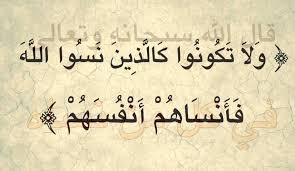 قال الله سبحانه وتعالى
﴿ وَلَا تَكُونُوا كَالَّذِينَ نَسُوا اللَّهَ
فَأَنْسَاهُمْ أَنْفُسَهُمْ ﴾